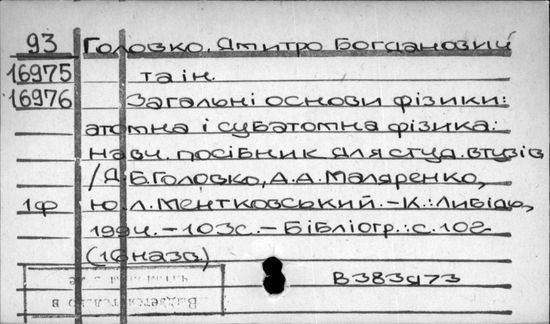 93 Головко, Дмитро Богданович
16975 та ін.
16976 Загальні основи фізики:
атомна і субатомна фізика:
Навч. посібник для студ. втузів
/Д.Б.Головко, А.А.Маляренко,
1ф Ю.Л.Ментковський.-К.:Либідь,
1994.-103с.-Бібліогр.:с.102
(16назв)
В383я73